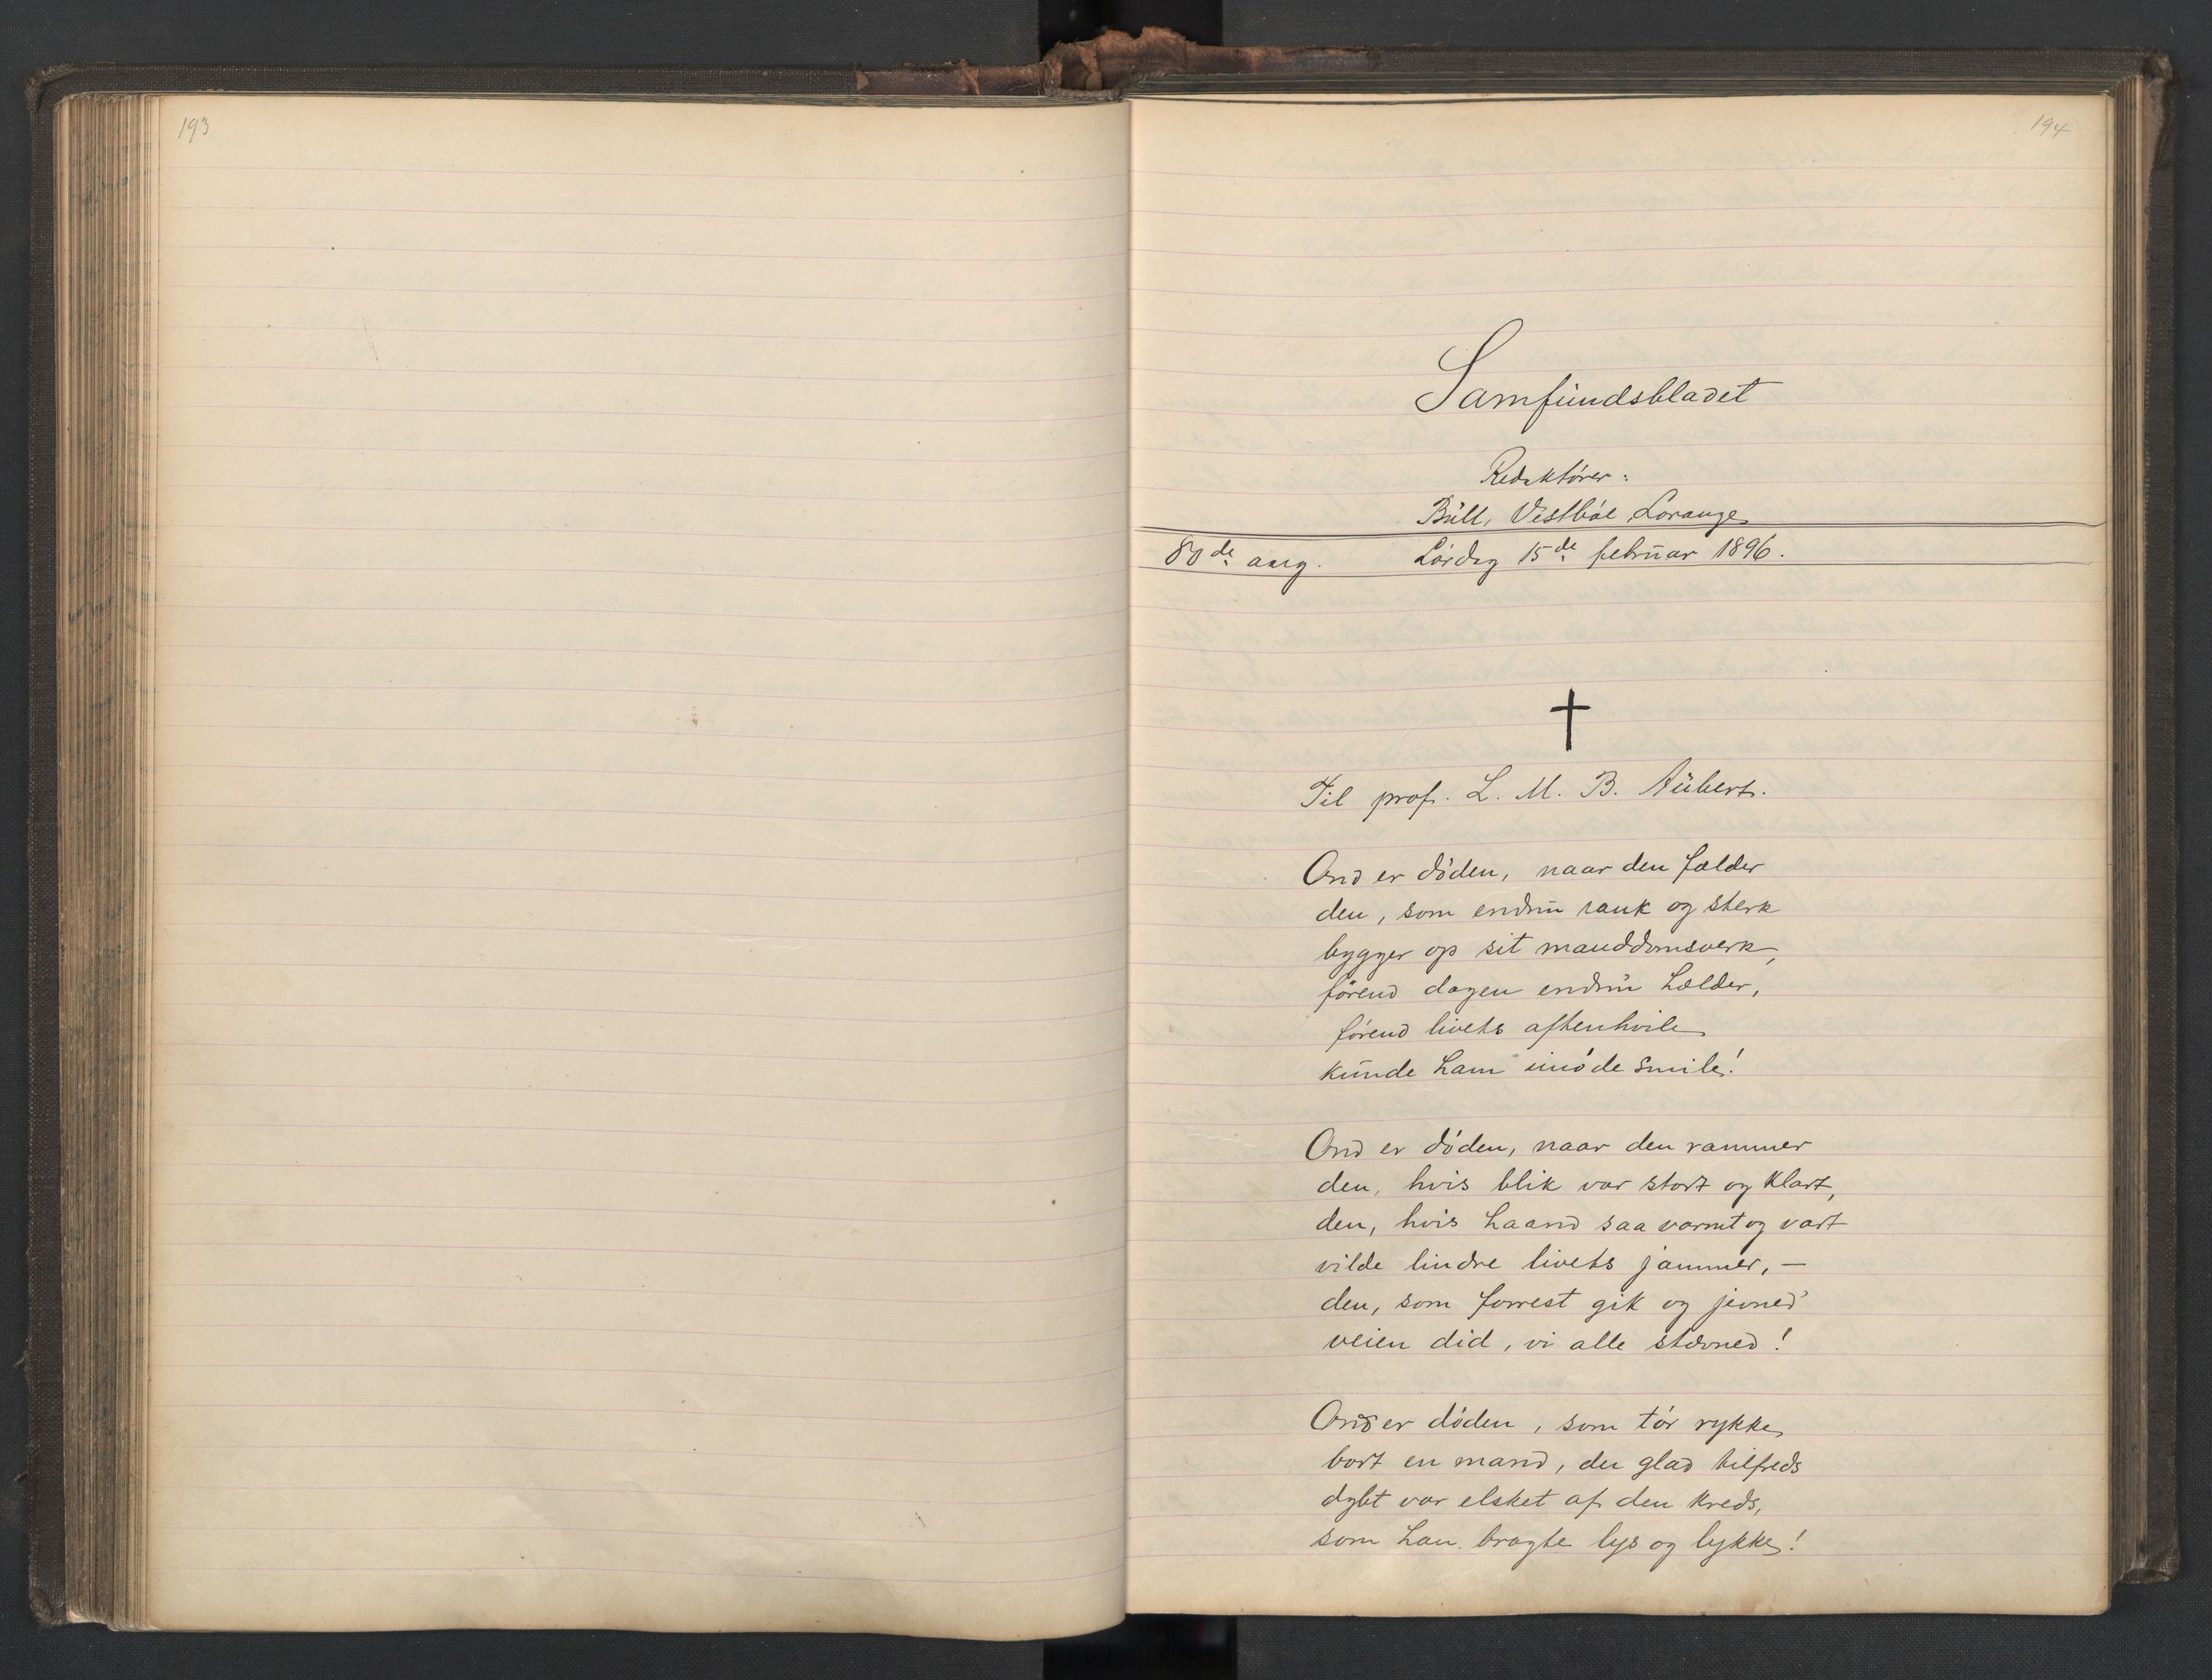 193
194
Samfundsbladet
Redaktører:
Bull, Vestbøe, Lorange
80de aarg. Lørdag 15de februar 1896.
†
Til prof. L. M. B. Aubert.
Ond er døden, naar den fælder
den, som endnu rank og sterk
bygger op sit manddomsverk,
førend dagen endnu hælder,
førend livets aftenhvile
kunde ham imøde smile!
Ond er døden, naar den rammer
den, hvis blik var stort og klart,
den, hvis haand saa varmt og vart
vilde lindre livets jammer, —
den, som forrest gik og jevned'
veien did, vi alle stævned!
Ond er døden, som tør rykke
bort en mand, der glad tilfreds
dybt var elsket af den kreds,
som han bragte lys og lykke!